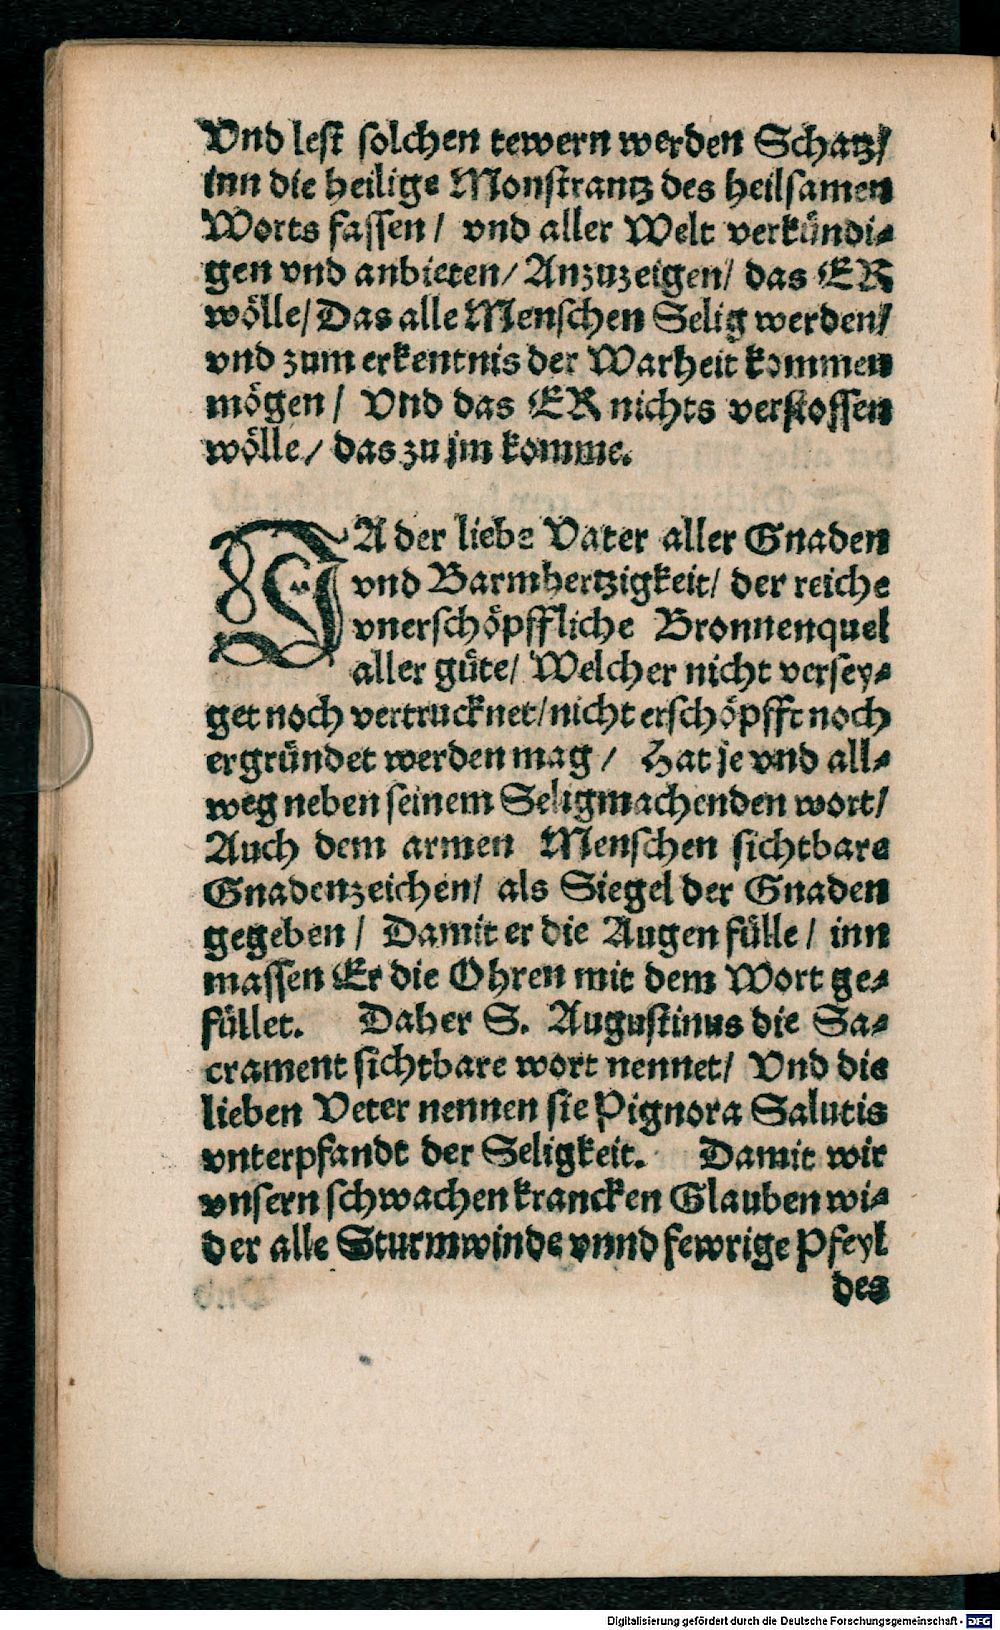 Vnd lest solchen tewern werden Schatz/
inn die heilige Monstrantz des heilsamen
Worts fassen / vnd aller Welt verkündi-
gen vnd anbieten / Anzuzeigen / das ER
wölle / Das alle Menschen Selig werden /
vnd zum erkentnis der Warheit kommen
mögen / Vnd das ER nichts verstossen
wölle / das zu jm komme.
JA der liebe Vater aller Gnaden
vnd Barmhertzigkeit / der reiche
vnerschöpffliche Bronnenquel
aller güte / Welcher nicht versey-
get noch vertrucknet / nicht erschöpfft noch
ergründet werden mag / Hat je vnd all-
weg neben seinem Seligmachenden wort /
Auch dem armen Menschen sichtbare
Gnadenzeichen / als Siegel der Gnaden
gegeben / Damit er die Augen fülle / inn
massen Er die Ohren mit dem Wort ge-
füllet. Daher S. Augustinus die Sa-
crament sichtbare wort nennet / Vnd die
lieben Veter nennen sie Pignora Salutis
vnterpfandt der Seligkeit. Damit wir
vnsern schwachen krancken Glauben wi-
der alle Sturmwinde vnnd fewrige Pfeyl
des
Digitalisierung gefördert durch die Deutsche Forschungsgemeinschaft - DFG